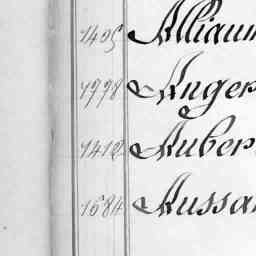 1405 Alliaum
1778 Anger
1412 Auber
1684 Aussa